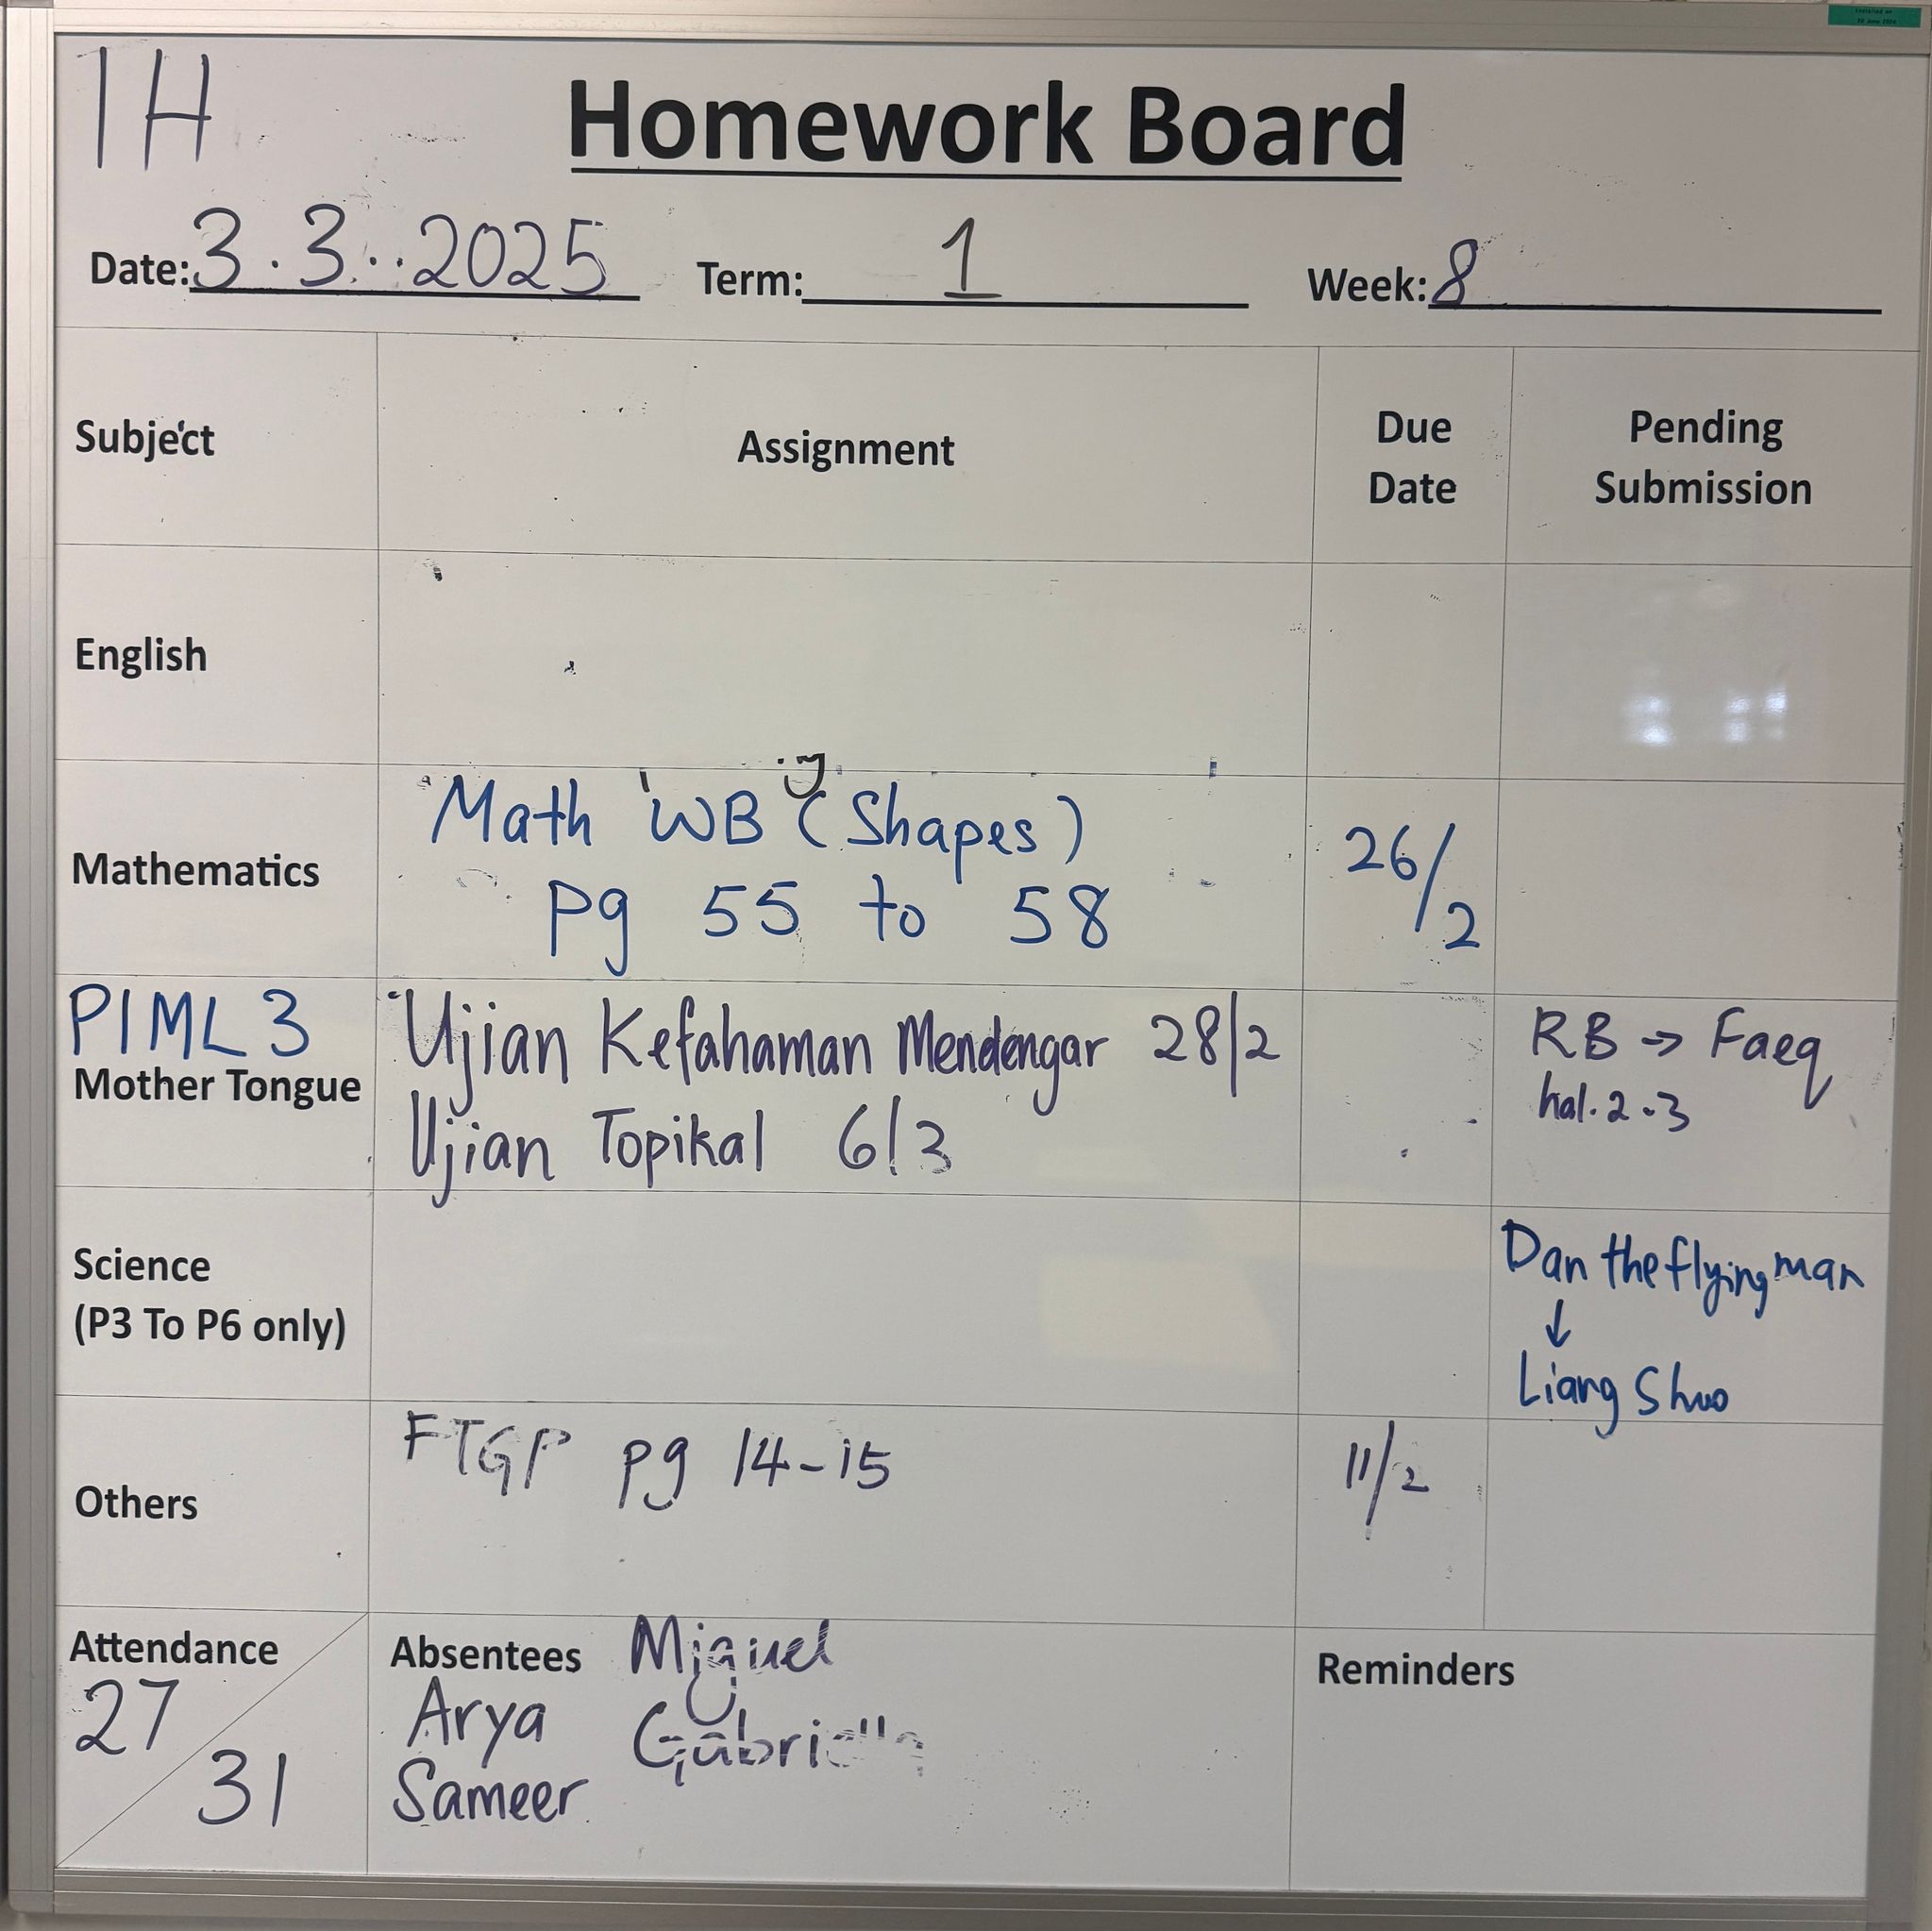 1H
Homework Board
Date: 3.3..2025 Term: 1 Week: 8
Subject Assignment Due Date Pending Submission
English
Mathematics Math WB (Shapes) pg 55 to 58 26/2
PIML 3
Mother Tongue
Ujian Kefahaman Mendengar 28/2
Ujian Topikal 6/3
RB → Faeq
hal. 2-3
Science
(P3 To P6 only)
Dan the flying man
↓
Liang Shuo
Others FTGP pg 14-15 11/2
Attendance
27/31
Absentees Miguel
Arya Gabriella
Sameer
Reminders